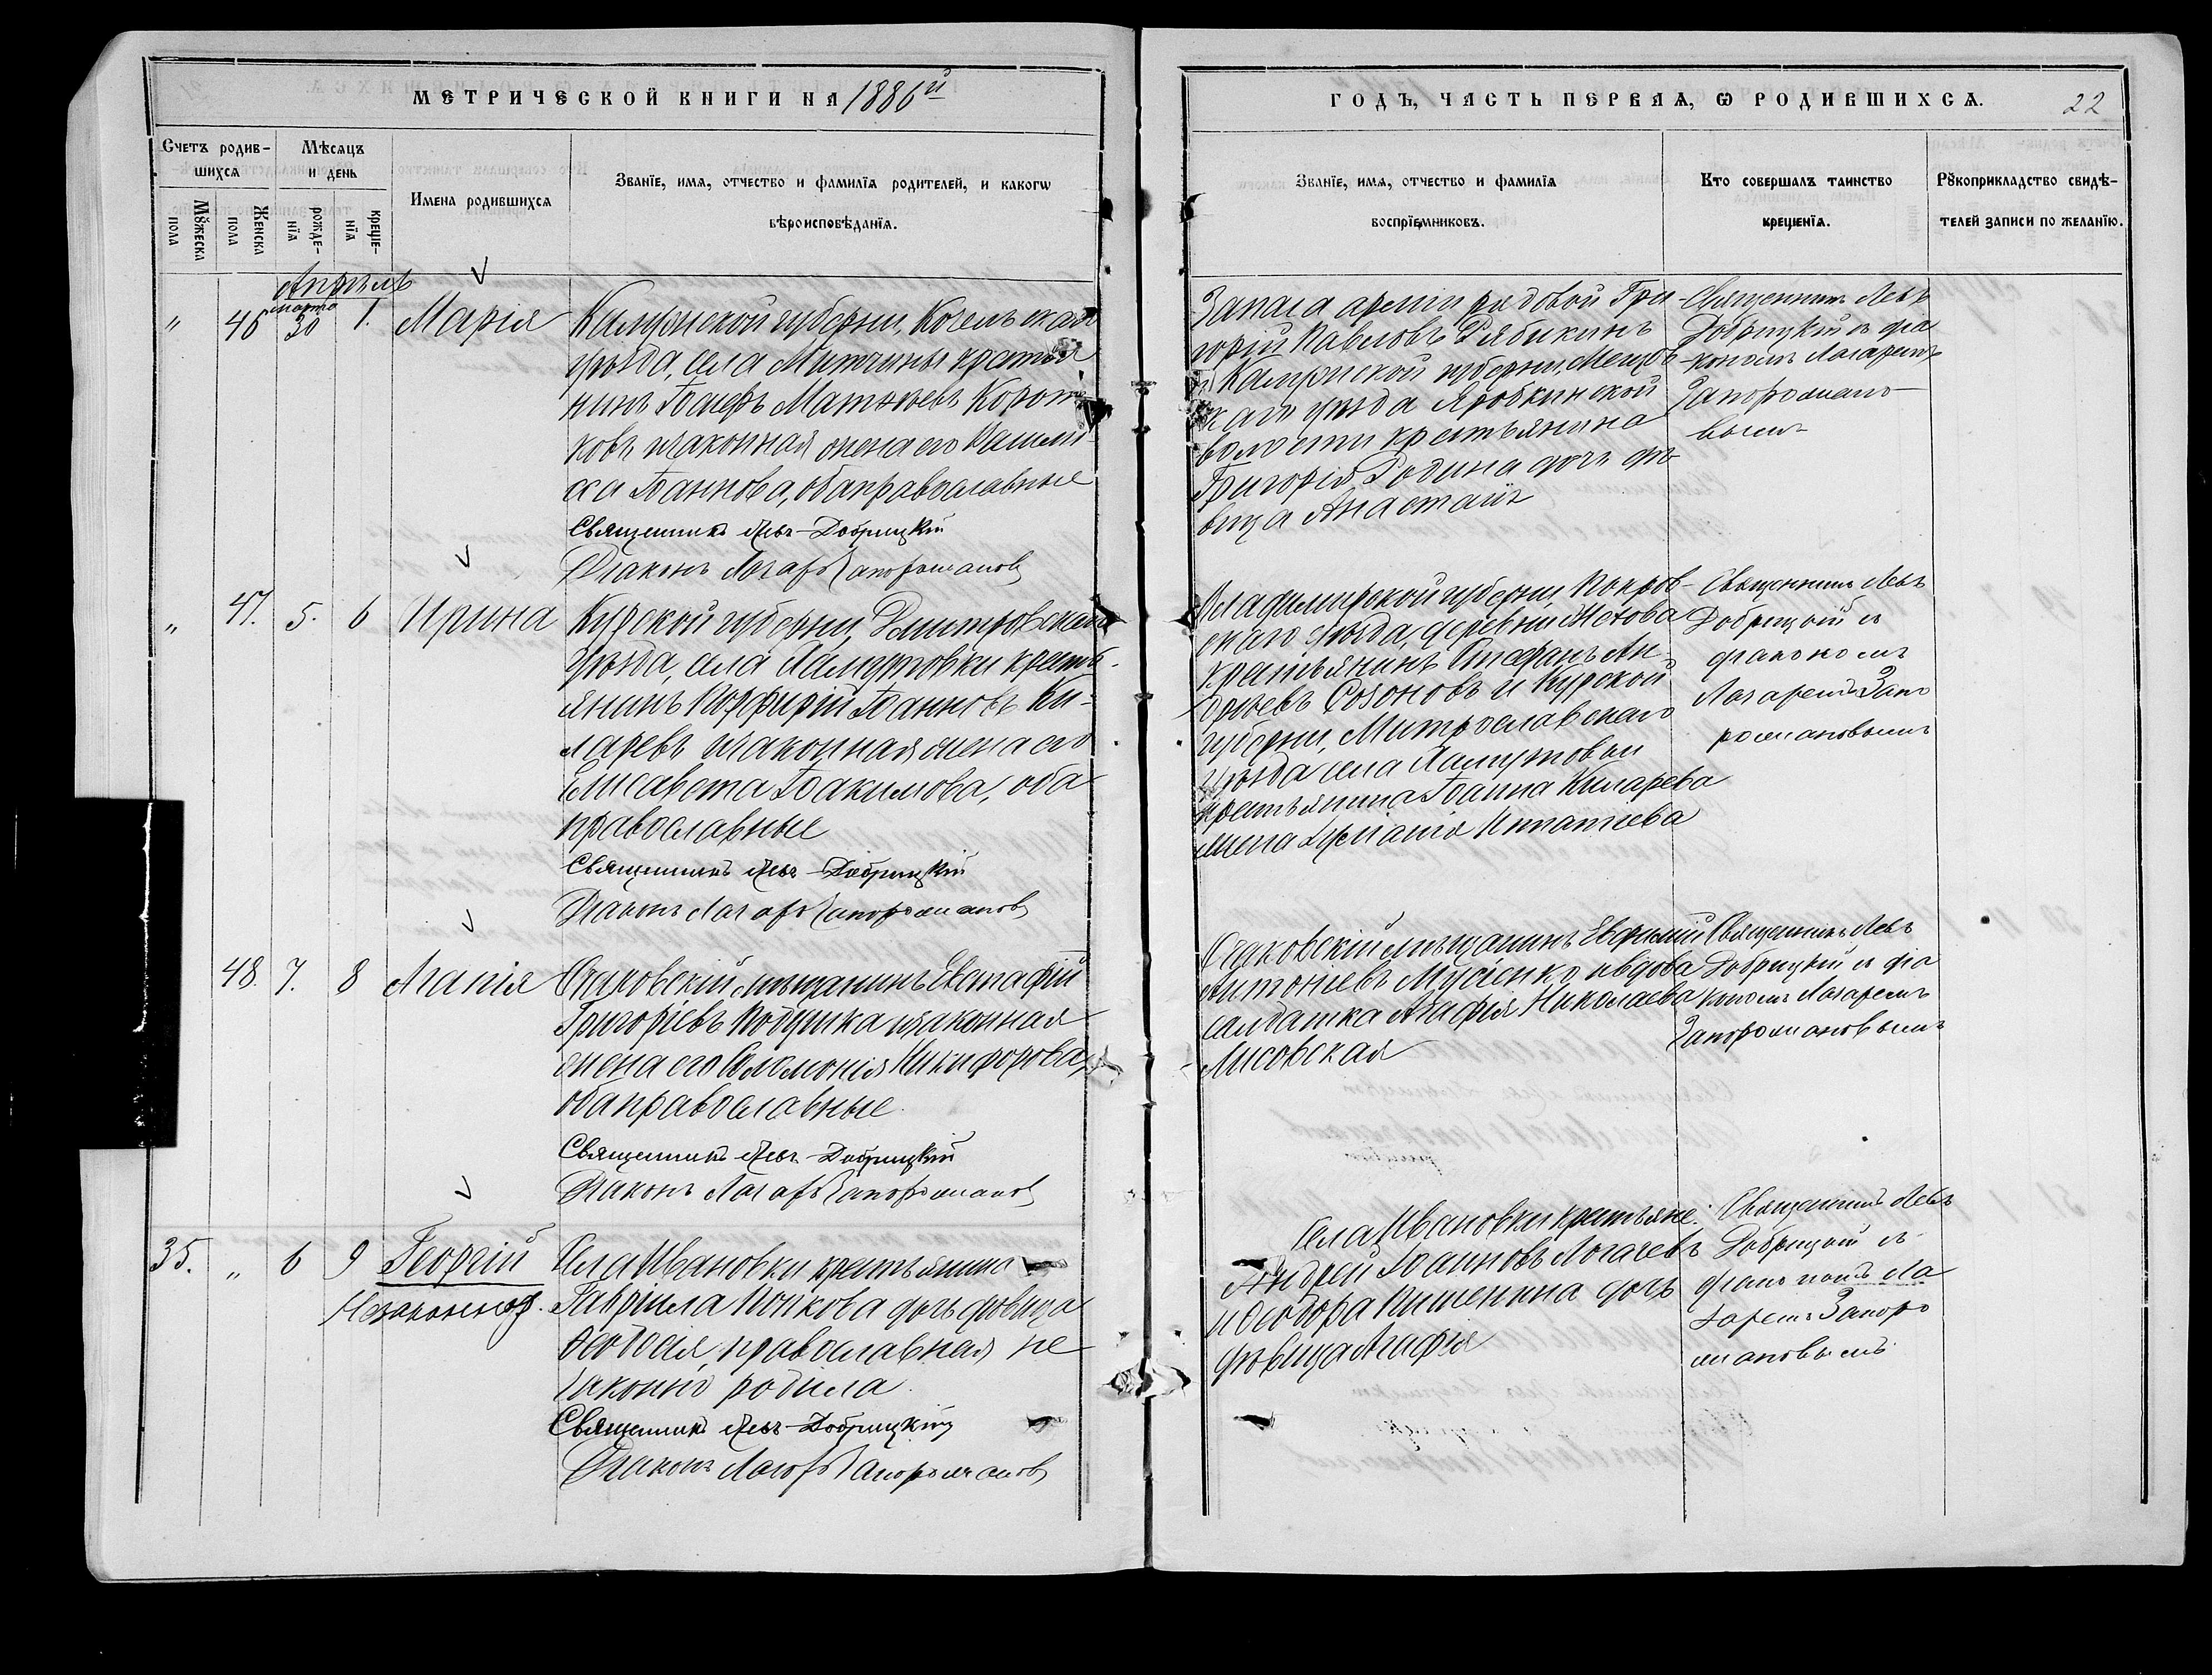 МЕТРИЧЕСКОЙ КНИГИ НА 1886й
ГОДЪ, ЧАСТЬ ПЕРВАЯ, Ѡ РОДИВШИХСѦ. 22
Счетъ родив-
шихся
Мꙋжеска
пола
Женска
пола
Мѣсяцъ
и день
рожде-
нїя
креще-
нїя
Имена родившихсѧ
Званїе, имѧ, отчество и фамилїѧ родителей, и какогѡ
вѣроисповѣданїѧ.
Званїе, имѧ, отчество и фамилїѧ
воспрїемниковъ.
Кто совершалъ таинство
крещенїѧ.
Рꙋкоприкладство свидѣ-
телей записи по желанїю.
Апрѣль
" 46 марта 30 1. Марія
Калужской губерніи, Козельскаго
уѣзда, села Митчины крестья
нинъ Іосифъ Матѳеевъ Корот
ковъ и законная жена его
Іоаннова, оба православные
Священникъ Левъ Добрицкій
Діаконъ Лазарь Запоромановъ
Запаса арміи рядовой Гри-
горій Павловъ Рябикинъ
и Калужской губерніи, Мещов
скаго уѣзда
волости крестьянина
Григорія Родина дочь дѣ
вица Анастасія
Священникъ Левъ
Добрицкій съ діа
кономъ Лазаремъ
Запоромано-
вымъ
" 47. 5. 6 Ирина
Курской губерніи, Дмитровскаго
уѣзда, села крестьянинъ Порфирій Іоанновъ Ки-
ларевъ и законная жена его
Елисавета Іоакимова, оба
православные
Священникъ Левъ Добрицкій
Діаконъ Лазарь Запоромановъ
Владимирской губерніи Покров-
скаго уѣзда, деревни
крестьянинъ Стефанъ Ан-
дреевъ Созоновъ и Курской
губерніи,
уѣзда села
крестьянина Іоанна Киларева
жена Игнатіева
Священникъ Левъ
Добрицкій съ
діакономъ
Лазаремъ Запо
романовымъ
48. 7. 8 Агапія
Очаковскій мѣщанинъ Евстафій
Григоріевъ Подушка и законная
жена его Соломонія Никифорова,
оба православные.
Священникъ Левъ Добрицкій
Діаконъ Лазарь Запоромановъ
Очаковскій мѣщанинъ Евфимій
Антоніевъ Мусіенко и вдова
салдатка Агафія Николаева
Лисовская
Священникъ Левъ
Добрицкій съ діа
кономъ Лазаремъ
Запоромановымъ
35. " 6 9 Георгій
Незаконнор.
Села Ивановки крестьянина
Гавріила дочь дѣвица
Ѳеодосія, православная не
законно родила.
Священникъ Левъ Добрицкій
Діаконъ Лазарь Запоромановъ
Села Ивановки крестьяне:
Андрей Іоанновъ Логачевъ
и Ѳеодора дочь
дѣвица Агафія
Священникъ Левъ
Добрицкій съ
діакономъ Ла
заремъ Запоро
мановымъ